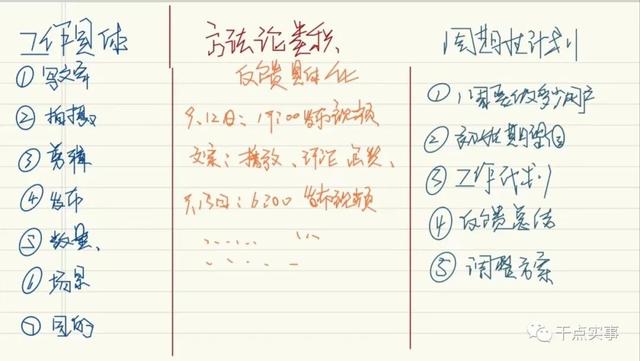 工作具体
①写文案
②拍摄
③剪辑
④发布
⑤数量、
⑥场景
⑦目的
方法论累积
反馈具体化
9.12日：19:00发布视频
文案：播放、评论、
9.13日：6:00发布视频
周期性计划
①周要做多少用户
②初始期望值
③工作计划
④反馈总结
⑤调整方案
干点实事